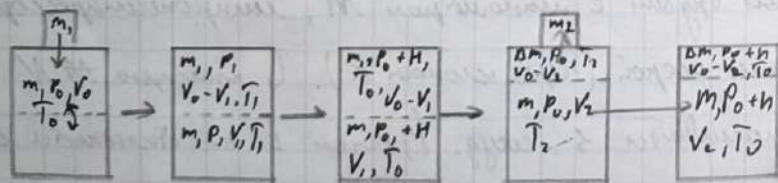 m₁
m, P₀, V₀
T₀
m₁, P₁
V₀-V₁, T₁
m, P, V, T₁
m₁, P₀+H,
T₀, V₀-V₁
m, P₀, +H
V₁, T₀
m₂
Δm, P₀, T₂
V₀-V₂
m, P₀, V₂
T₂
Δm, P₀+h
V₀-V₂, T₀
m, P₀+h
V₂, T₀